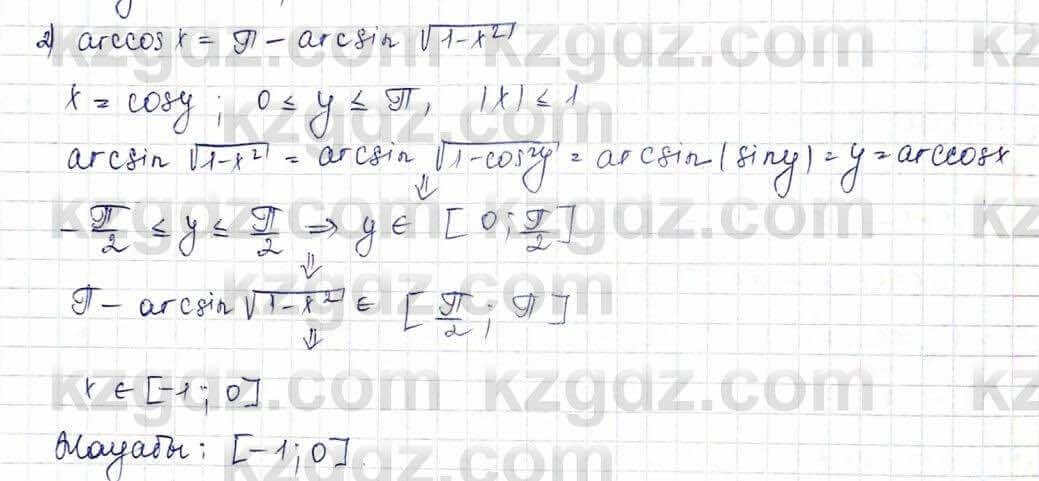 2) arccos x = π - arcsin √(1-x²)
x = cosy ; 0 ≤ y ≤ π, |x| ≤ 1
arcsin √(1-x²) = arcsin √(1-cos²y) = arcsin(siny) = y = arccosx
⇓
-π/2 ≤ y ≤ π/2 ⇒ y ∈ [0; π/2]
⇓
π - arcsin √(1-x²) ∈ [π/2; π]
⇓
x ∈ [-1; 0]
Жауабы: [-1; 0].
kzgdz.com